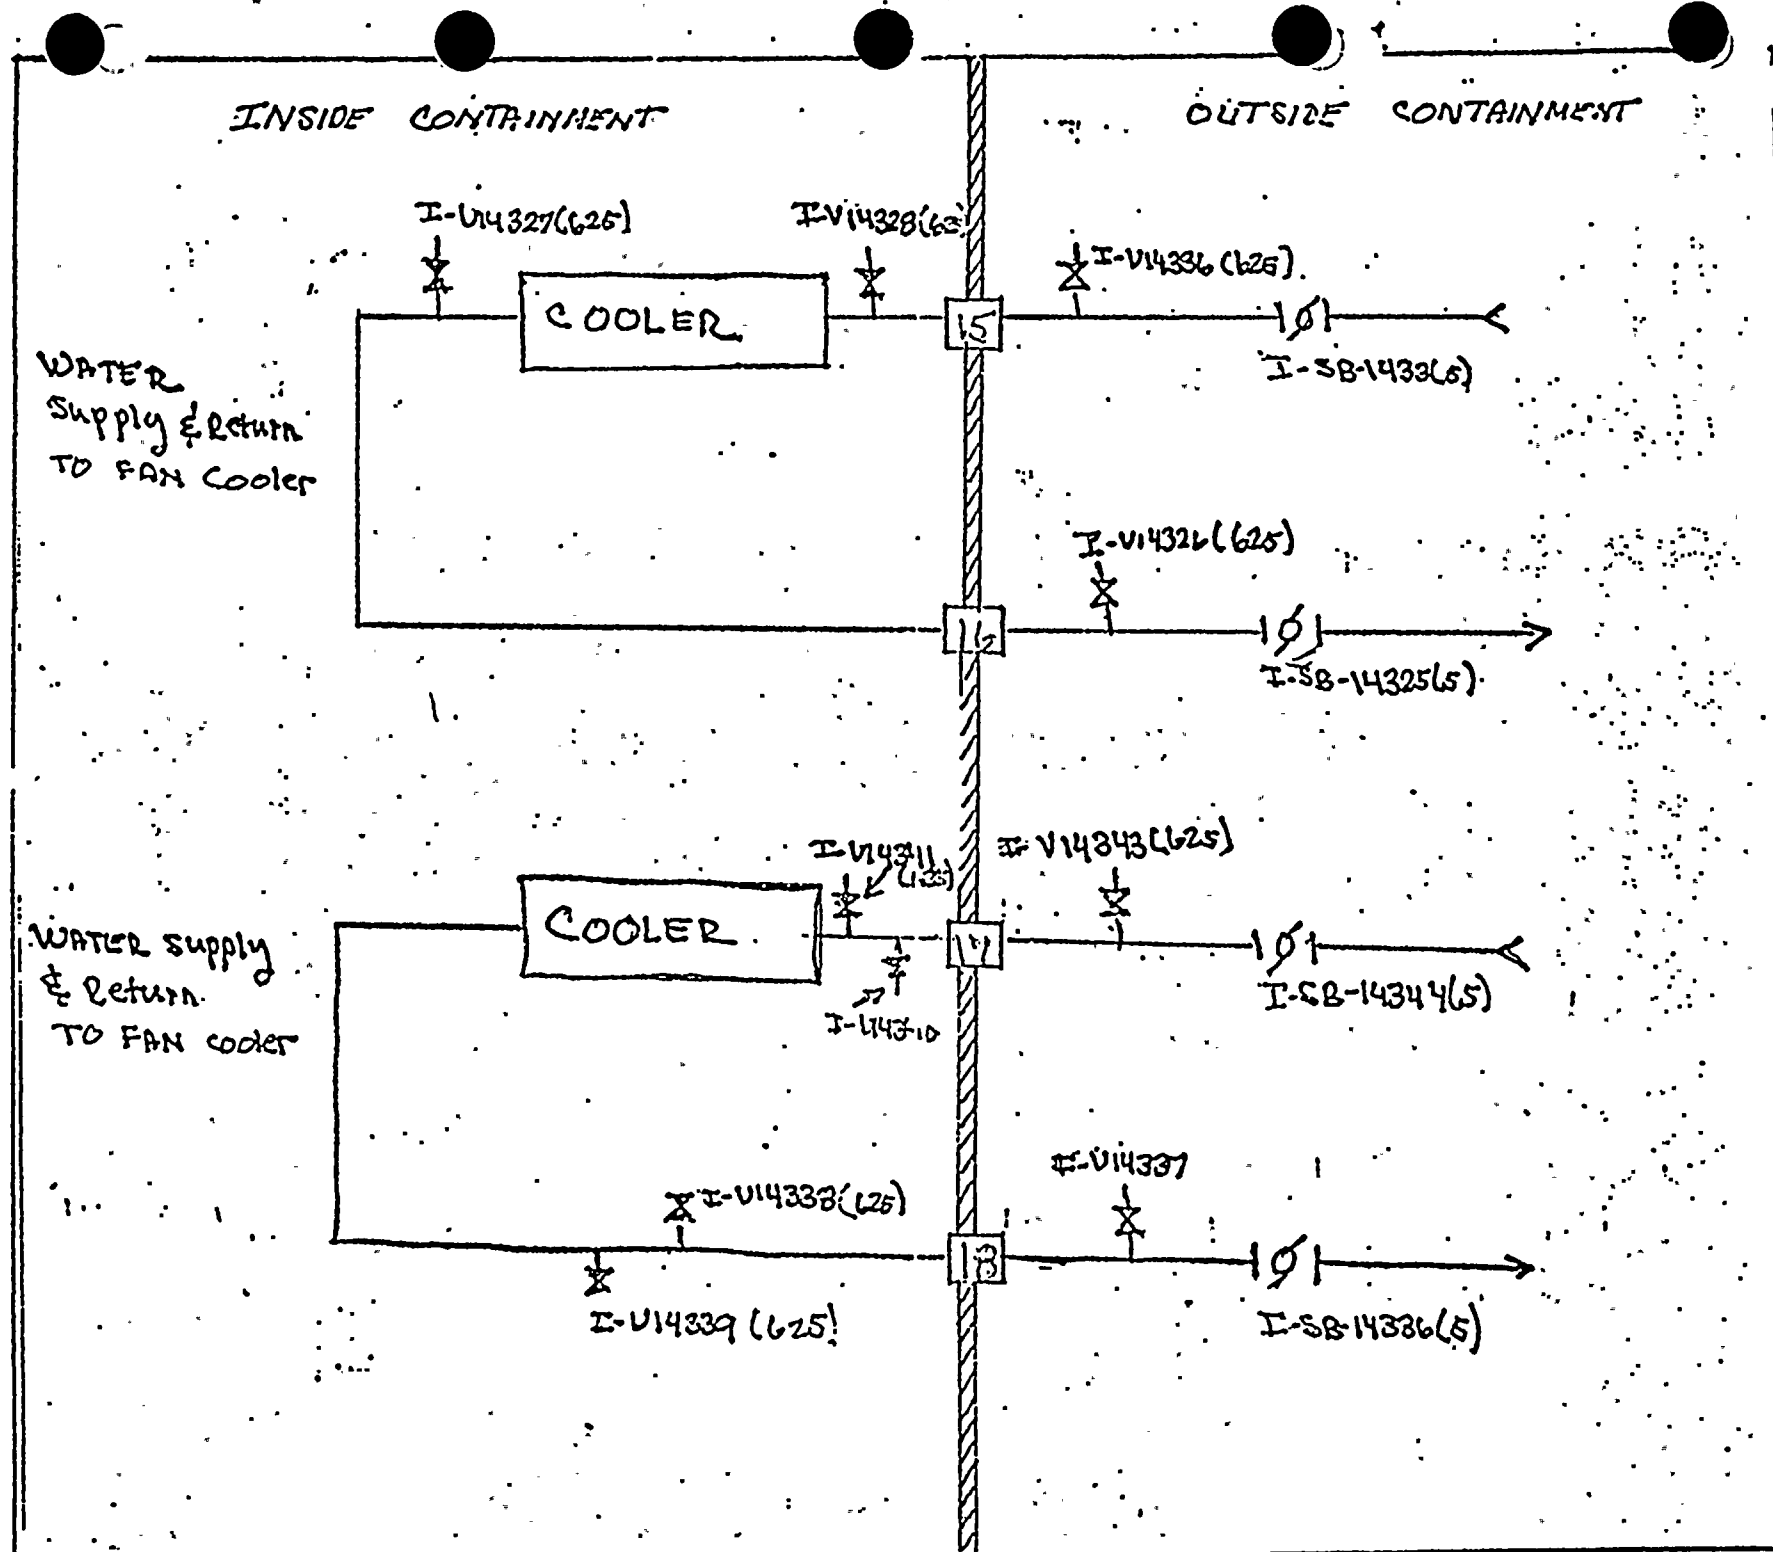 INSIDE CONTAINMENT
OUTSIDE CONTAINMENT
I-V14327(625)
I-V14328
I-V14336(625)
COOLER
15
I-SB-1433(5)
WATER
Supply & Return
TO FAN Cooler
I-V14326(625)
16
I-SB-14325(5)
I-V14343(625)
COOLER
17
I-SB-14344(5)
WATER Supply
& Return
TO FAN cooler
I-V14337
I-V14338(625)
18
I-V14339(625)
I-SB-14336(5)